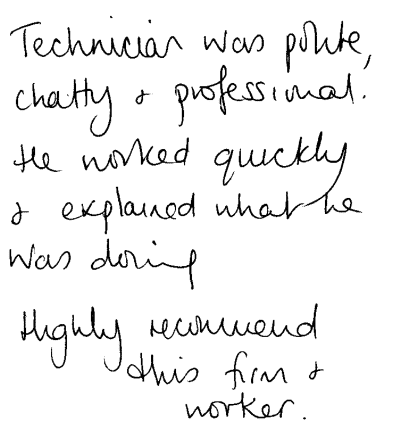 Technician was polite,
chatty & professional.
He worked quickly
& explained what he
was doing
Highly recommend
this firm &
worker.